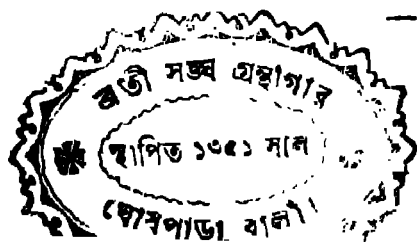 ব্রতী সঙ্ঘ গ্রন্থাগার
স্থাপিত ১৩৫১ সাল
ঘোষপাড়া বালী।